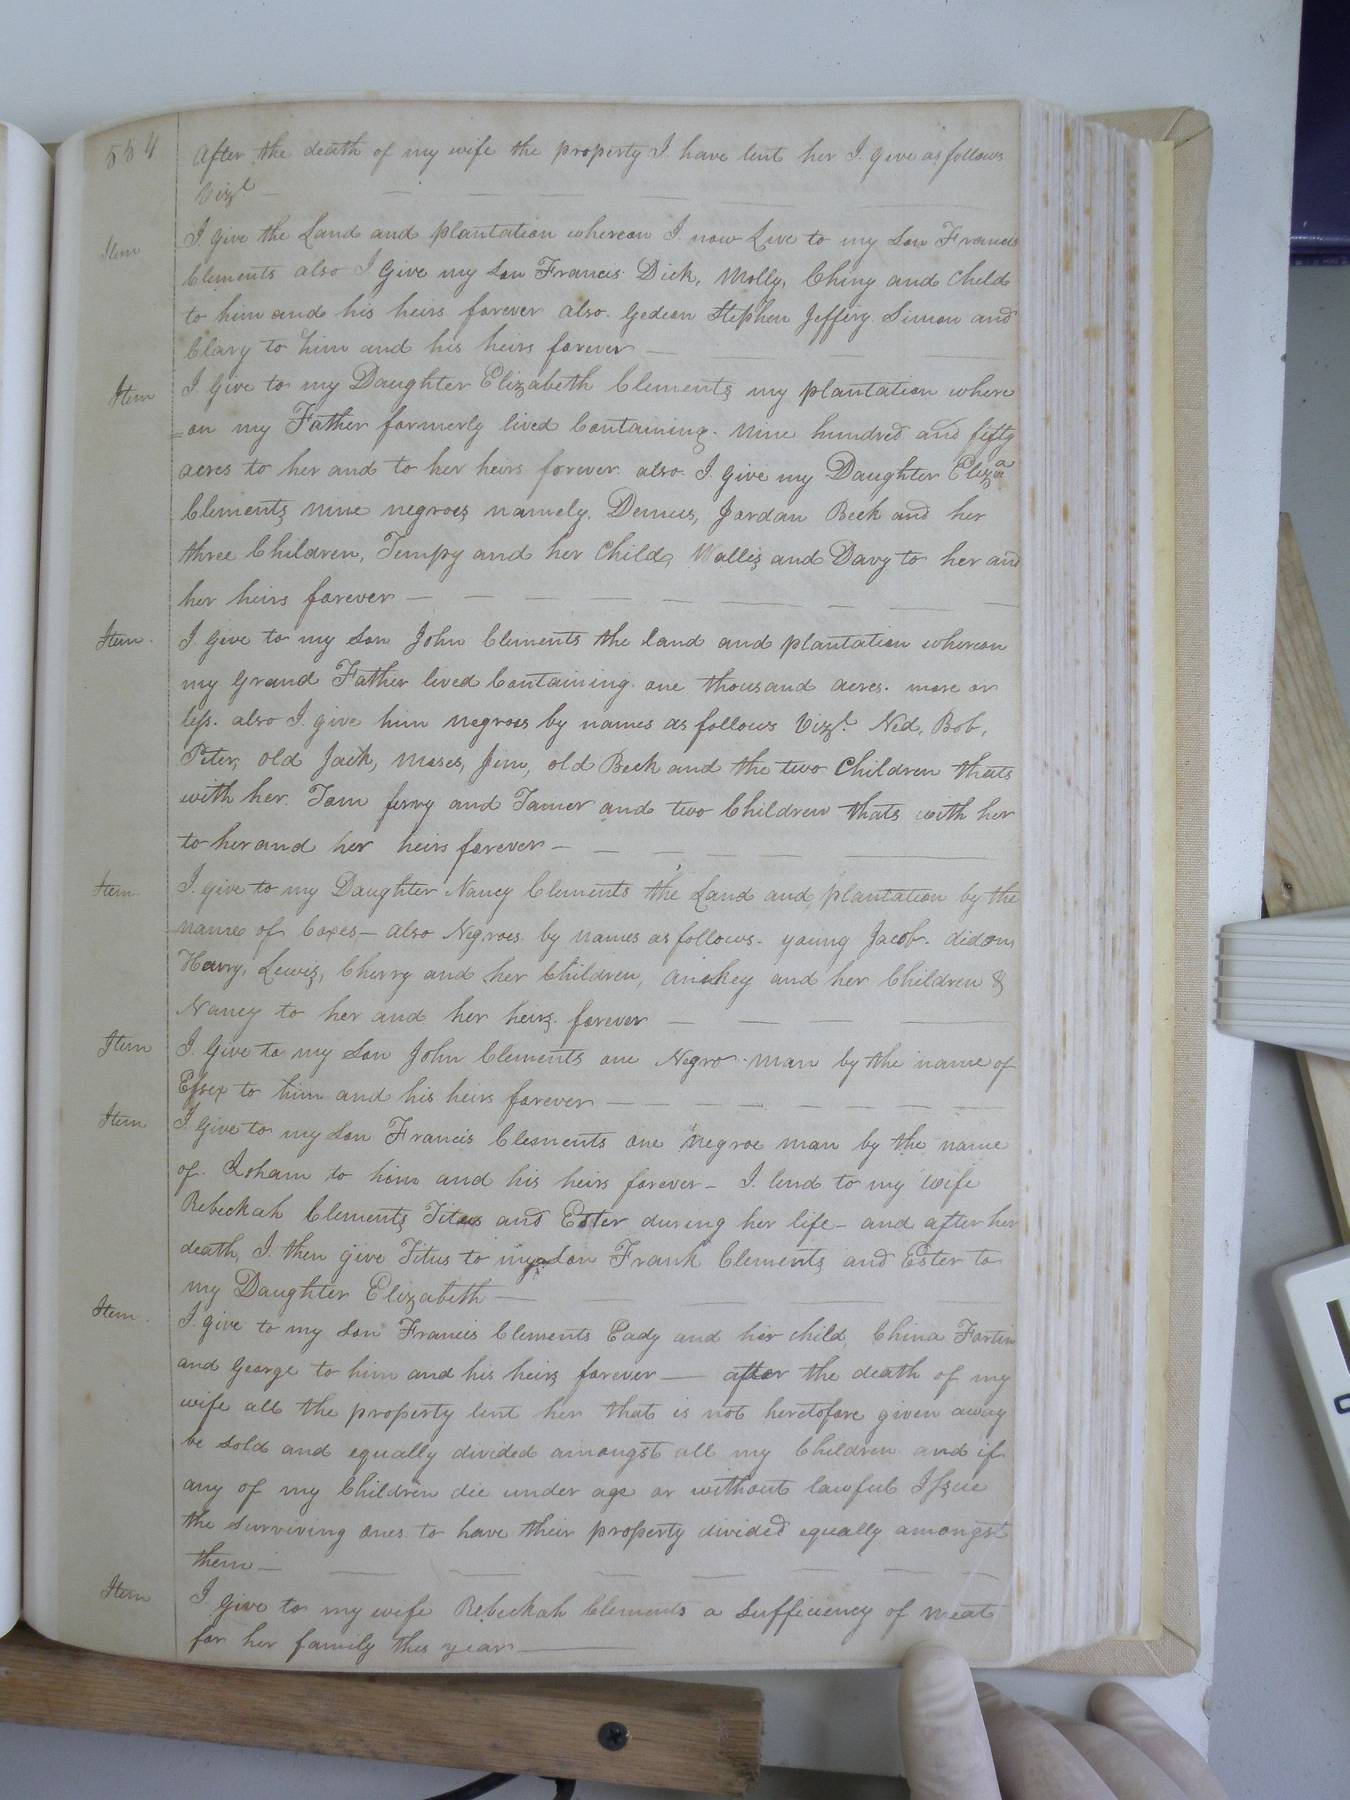 554
After the death of my wife the property I have lent her I give as follows
Vizt
Item I give the Land and plantation whereon I now Live to my Son Francis
Clements also I Give my Son Francis Dick, Molly, Ching and Child
to him and his heirs forever also Gedeon Stephen Jeffery Simon and
Clary to him and his heirs forever
Item I Give to my Daughter Elizabeth Clements my plantation where
=on my Father formerly lived Containing nine hundred and fifty
acres to her and to her heirs forever also I give my Daughter Eliza
Clements nine negroes namely, Demus, Jordan Beck and her
three Children, Tempy and her Child, Wallis and Davy to her and
her heirs forever
Item I Give to my Son John Clements the land and plantation whereon
my Grand Father lived Containing one thousand acres more or
less also I give him negroes by names as follows Vizt Ned, Bob,
Peter, old Jack, Moses, Jim, old Beck and the two Children thats
with her Tom ferry and Tamer and two Children thats with her
to her and her heirs forever
Item I give to my Daughter Nancy Clements the Land and plantation by the
name of Coxes – also Negroes by names as follows – young Jacob
Harry, Lewis, Cherry and her Children, and her Children &
Nancy to her and her heirs forever
Item I Give to my Son John Clements one Negro man by the name of
Essex to him and his heirs forever
Item I Give to my Son Francis Clements one Negroe man by the name
of Isham to him and his heirs forever – I lend to my wife
Rebeckah Clements Titus and Ester during her life – and after her
death, I then give Titus to my Son Frank Clements and Ester to
my Daughter Elizabeth
Item I give to my Son Francis Clements Eady and her child, China
and George to him and his heirs forever — after the death of my
wife all the property lent her that is not heretofore given away
be sold and equally divided amongst all my Children and if
any of my Children die under age or without lawful Issue
the surviving ones to have their property divided equally amongst
them
Item I Give to my wife Rebeckah Clements a Sufficiency of meat
for her family this year